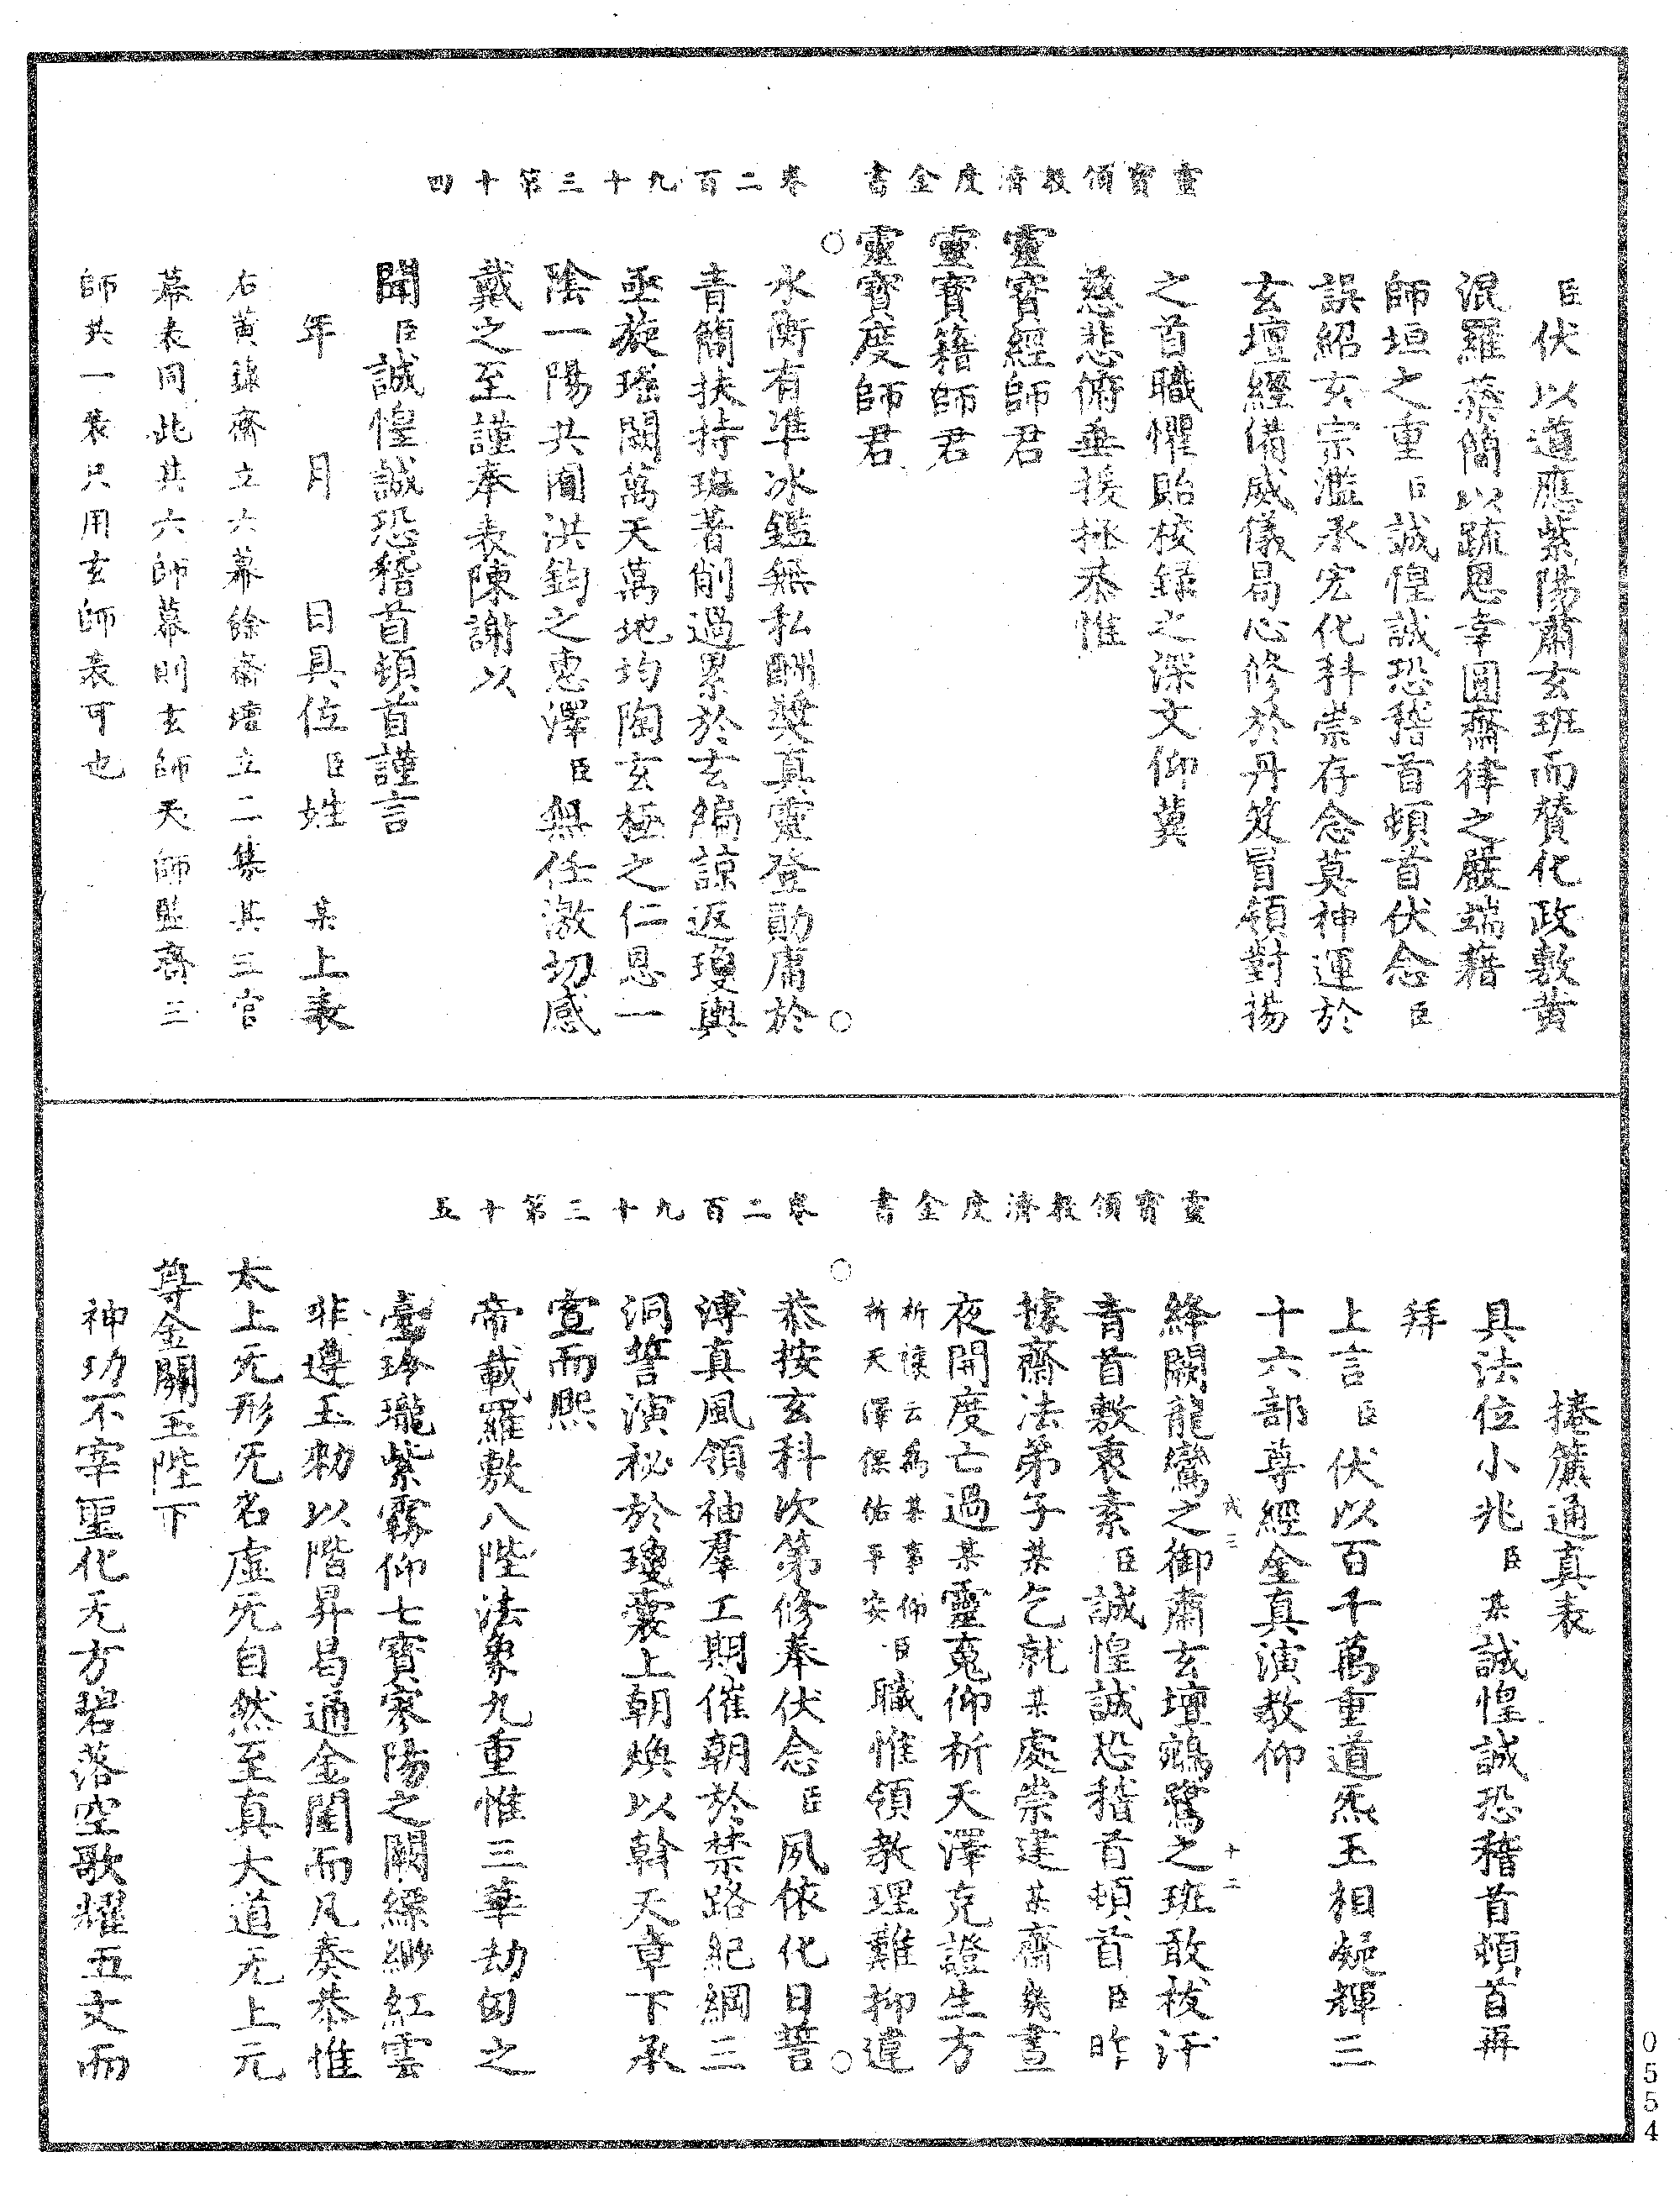 靈寶領教濟度金書　卷二百九十三第十四
臣伏以道應紫陽肅玄班而贊化政敷黃
混羅蘂簡以疏恩幸圓齋律之嚴端藉
師垣之重臣誠惶誠恐稽首頓首伏念臣
誤紹玄宗濫承宏化科崇存念莫神運於
玄壇經備威儀曷心修於丹笈冒領對揚
之首職懼貽校錄之深文仰冀
慈悲俯垂援拯恭惟
靈寶經師君
靈寶籍師君
靈寶度師君
水衡有準冰鑑無私酬奬真靈登勛庸於
青簡扶持班著削過累於玄編諒返瓊輿
亟旋瑤闕萬天萬地均陶玄極之仁恩一
陰一陽共囿洪鈞之惠澤臣無任激切感
戴之至謹奉表陳謝以
聞臣誠惶誠恐稽首頓首謹言
年　月　日具位臣姓　某上表
右黃籙齋立六幕餘齋壇立二幕其三官
幕表同此其六師幕則玄師天師監齋三
師共一表只用玄師表可也
靈寶領教濟度金書　卷二百九十三第十五
捲簾通真表
具法位小兆臣某誠惶誠恐稽首頓首再
拜
上言臣伏以百千萬重道炁玉相蜿輝三
十六部尊經金真演教仰
絳闕龍鸞之御肅玄壇鵷鷺之班敢拔汗
青首敷衷素臣誠惶誠恐稽首頓首臣昨
據齋法弟子某乞就某處崇建某齋幾晝
夜開度亡過某靈䰟仰祈天澤克證生方
祈禳云為某事仰
祈天澤保佑平安臣職惟領教理難抑違
恭按玄科次第修奉伏念臣夙依化日誓
溥真風領袖羣工期催朝於禁路紀綱三
洞誓演秘於瓊囊上朝煥以斡天章下承
宣而熙
帝載羅敷八陛法象九重惟三華劫囪之
臺玲瓏紫霧仰七寶寥陽之闕縹緲紅雲
非遵玉勑以階昇曷通金闉而凡奏恭惟
太上无形无名虛无自然至真大道无上元
尊金闕玉陛下
神功不宰聖化无方碧落空歌耀五文而
戎三
十二
0554